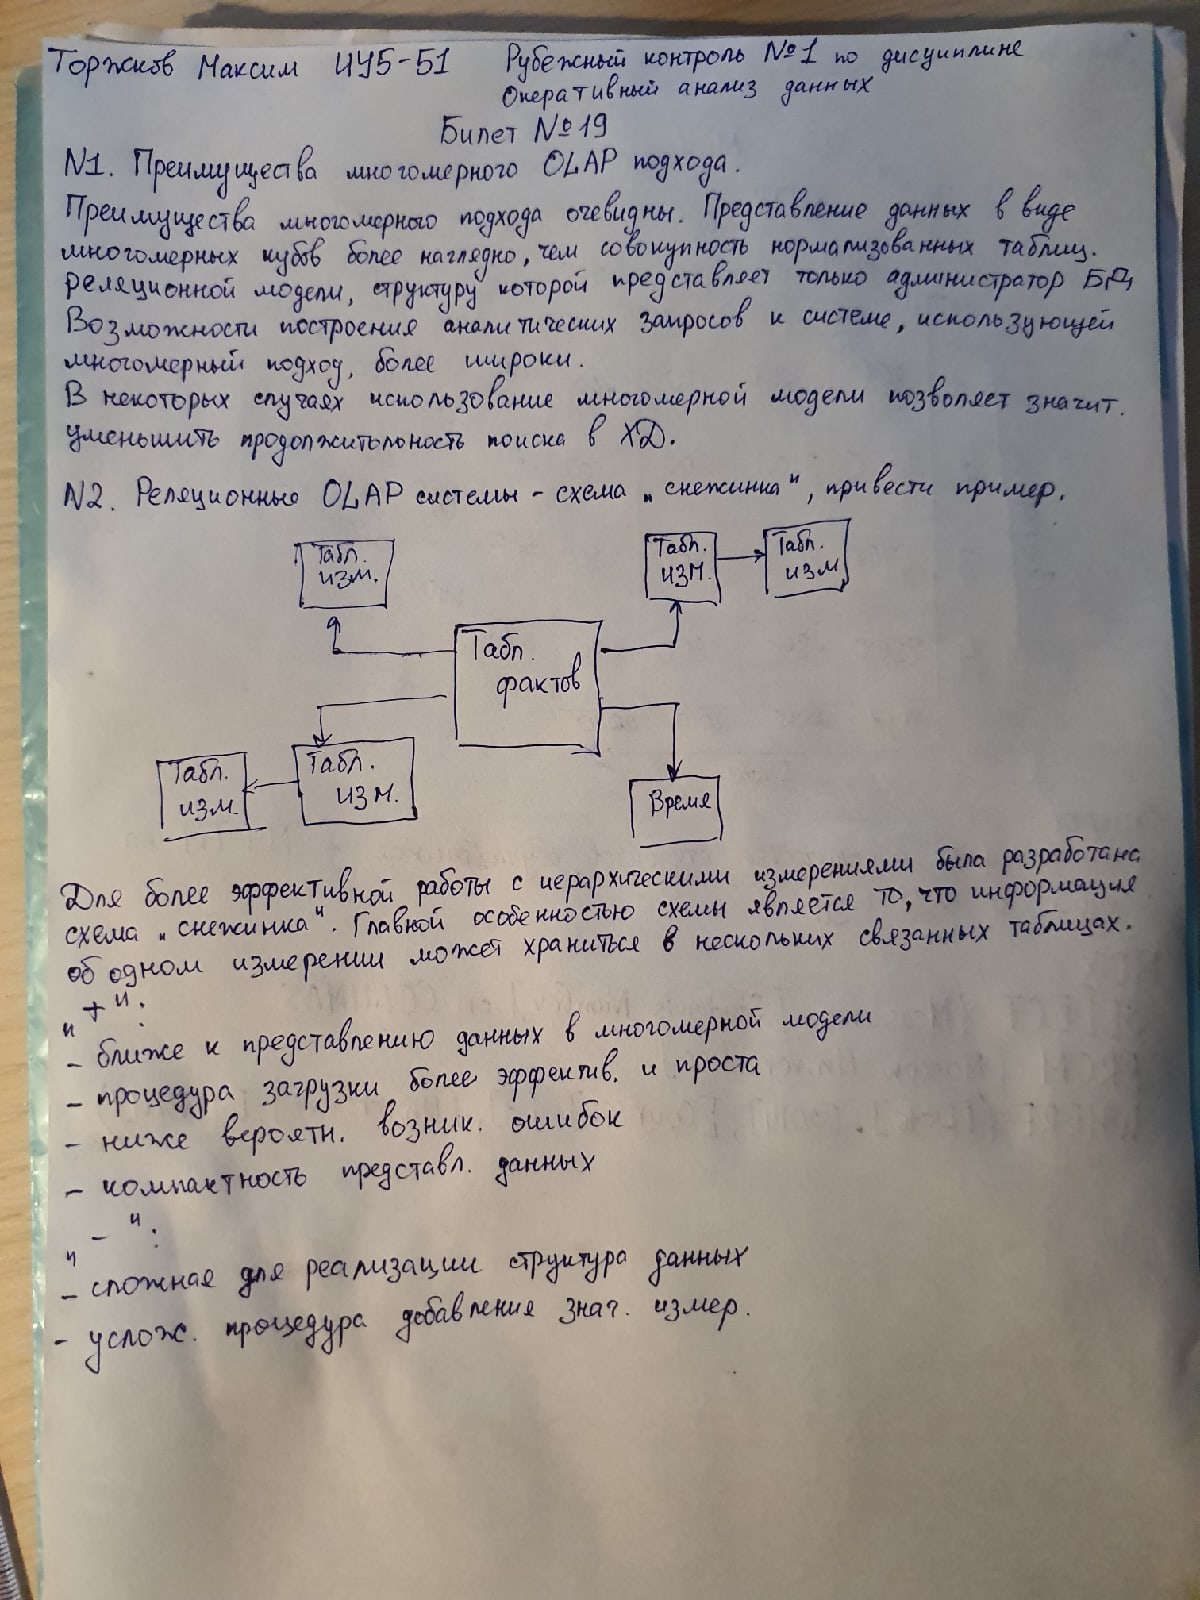 Торжков Максим ИУ5-51 Рубежный контроль №1 по дисциплине
Оперативный анализ данных
Билет №19
N1. Преимущества многомерного OLAP подхода.
Преимущества многомерного подхода очевидны. Представление данных в виде
многомерных кубов более наглядно, чем совокупность нормализованных таблиц.
реляционной модели, структуру которой представляет только администратор БД
Возможности построения аналитических запросов к системе, использующей
многомерный подход, более широки.
В некоторых случаях использование многомерной модели позволяет значит.
уменьшить продолжительность поиска в ХД.
N2. Реляционные OLAP системы - схема „снежинка", привести пример.
Табл. изм.
Табл. изм.
Табл. изм
Табл. фактов
Табл. изм.
Табл. изм.
Время
Для более эффективной работы с иерархическими измерениями была разработана
схема „снежинка". Главной особенностью схемы является то, что информация
об одном измерении может храниться в нескольких связанных таблицах.
„+":
- ближе к представлению данных в многомерной модели
- процедура загрузки более эффектив. и проста
- ниже вероятн. возник. ошибок
- компактность представл. данных
„-":
- сложная для реализации структура данных
- услож. процедура добавления знач. измер.